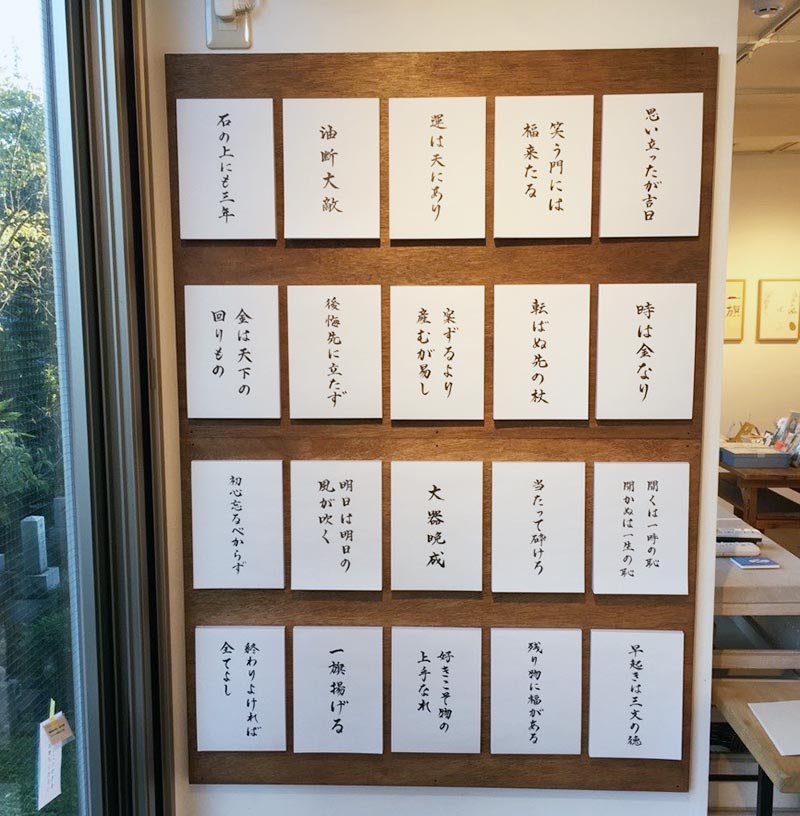 思い立ったが吉日
笑う門には
福来たる
運は天にあり
油断大敵
石の上にも三年
時は金なり
転ばぬ先の杖
案ずるより
産むが易し
後悔先に立たず
金は天下の
回りもの
聞くは一時の恥
聞かぬは一生の恥
当たって砕けろ
大器晩成
明日は明日の
風が吹く
初心忘るべからず
早起きは三文の徳
残り物に福がある
好きこそ物の
上手なれ
一旗揚げる
終わりよければ
全てよし